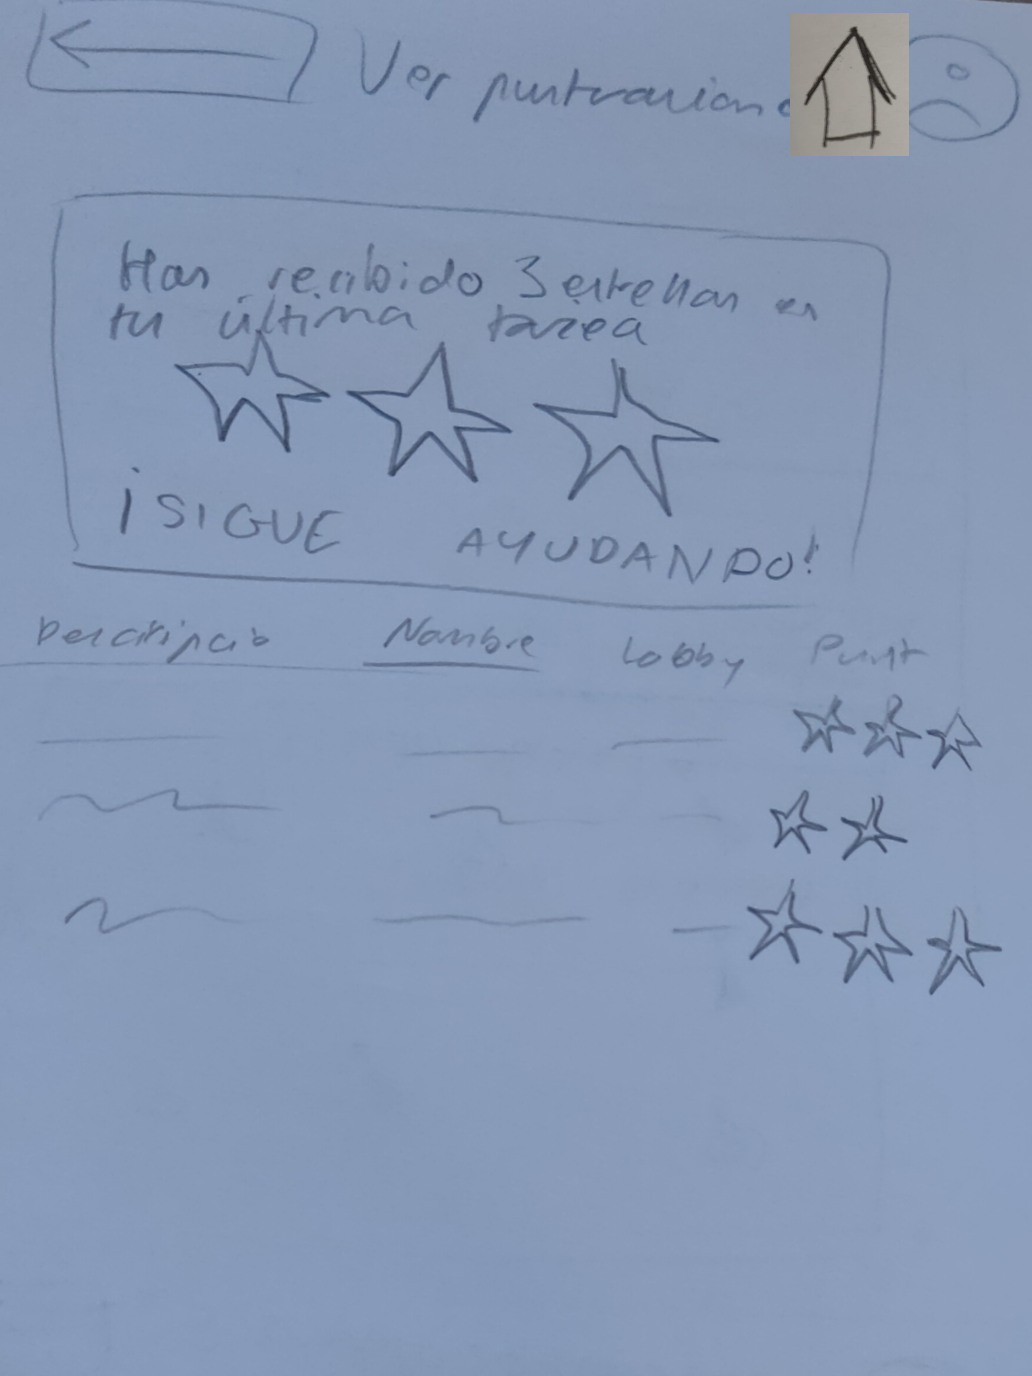 Ver puntuacione
Has recibido 3 estrellas en
tu última tarea
¡SIGUE AYUDANDO!
Descripció Nombre Lobby Punt